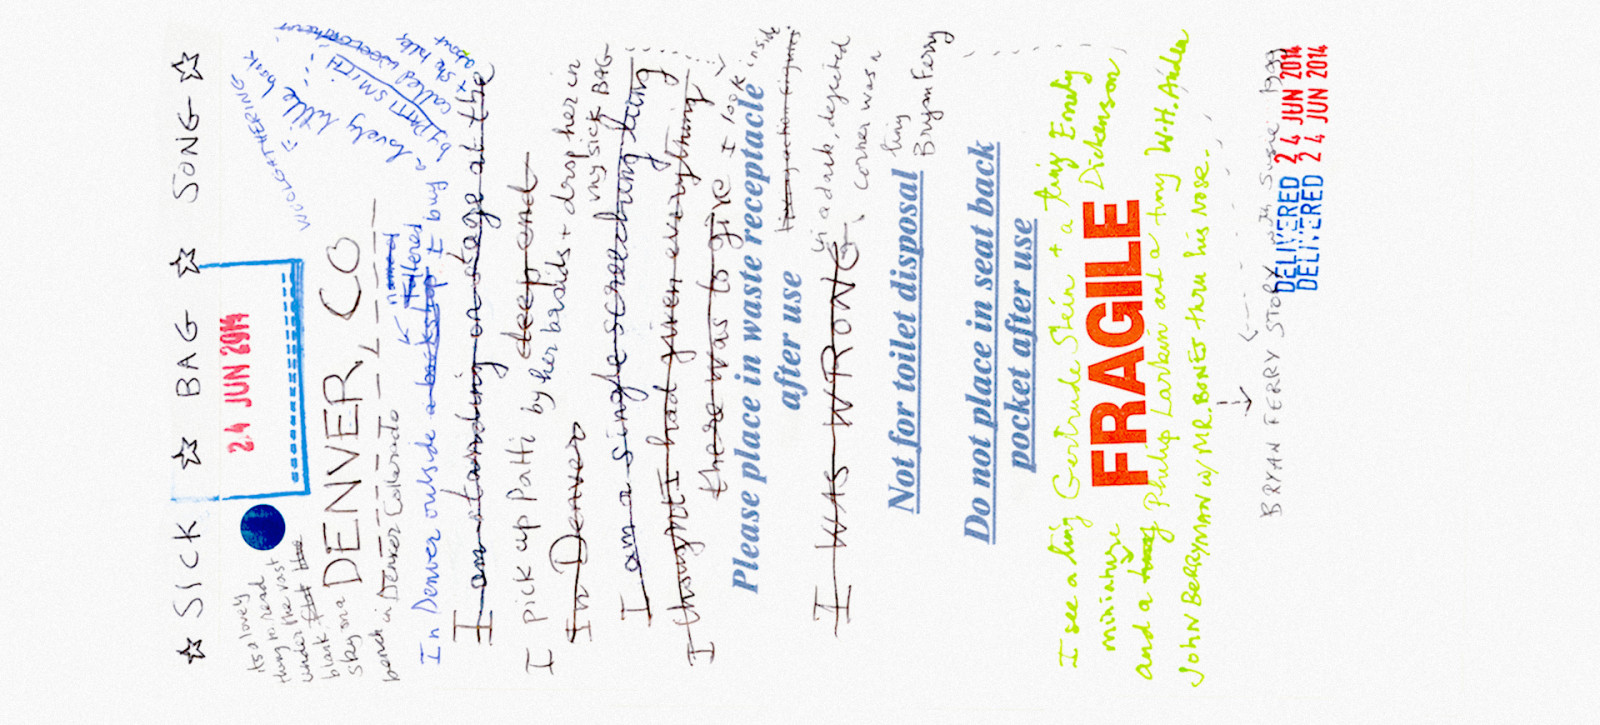 ☆ SICK ☆ BAG ☆ SONG ☆
24 JUN 2014
WOOLGATHERING
a lovely little book
by PATTI SMITH
called WOOLGATHERING
its a lovely
thing to read
under the vast
blank
sky on a
bench in Denver Colorado
DENVER, CO
In Denver outside a bookstop named Tattered I buy
I am standing on stage at the
deep end
I pick up Patti by her braids + drop her in
my sick BAG
In Denver
I am a single screeching lung
I thought I had given everything
there was to give
I look inside
Please place in waste receptacle
after use
I WAS WRONG
in a dark, dejected
corner was a
tiny
Bryan Ferry
Not for toilet disposal
Do not place in seat back
pocket after use
I see a tiny Gertrude Stein + a tiny Emely
miniature Dickenson
FRAGILE
and a tiny Philip Larkin and a tiny W.H. Auden
JOHN BERRYMAN w/ MR. BONES thru his nose.
BRYAN FERRY STORY
DELIVERED 24 JUN 2014
DELIVERED 24 JUN 2014